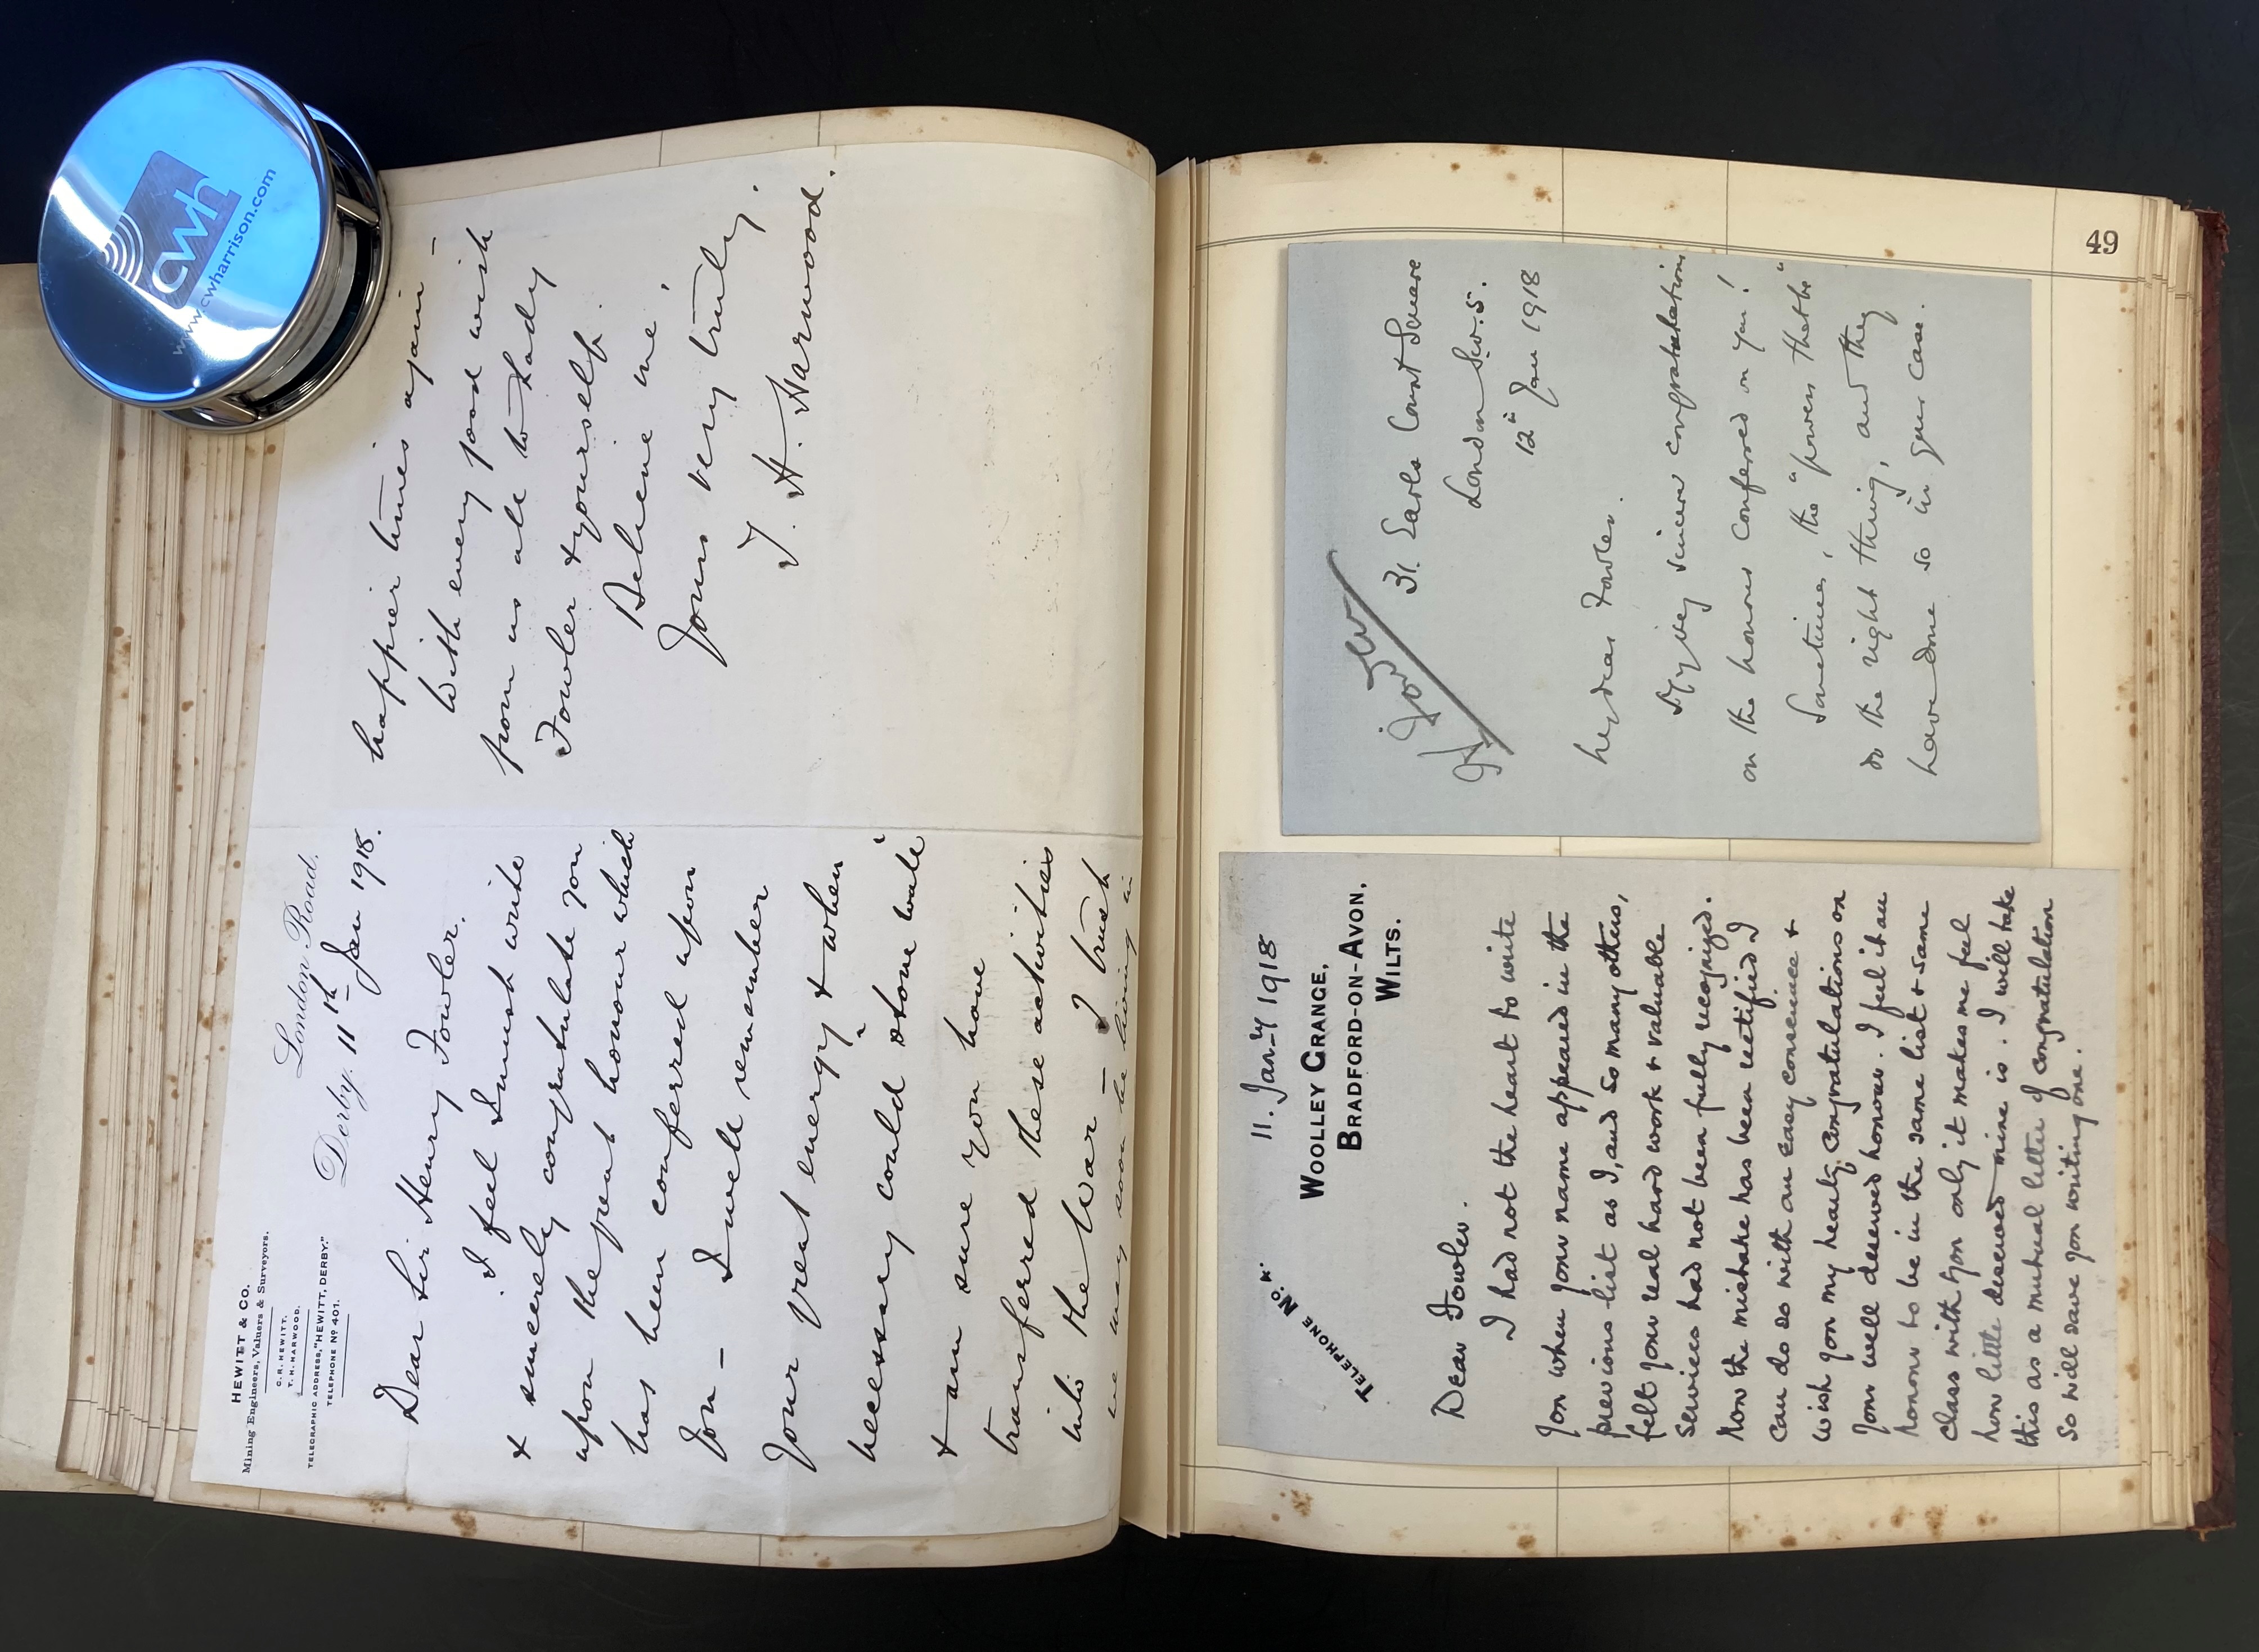 HEWITT & CO.
Mining Engineers, Valuers & Surveyors.
C. R. HEWITT.
T. H. HARWOOD.
TELEGRAPHIC ADDRESS, "HEWITT, DERBY."
TELEPHONE Nº 401.
London Road,
Derby. 11th Jan 1918.
Dear Sir Henry Fowler.
I feel I must write
& sincerely congratulate you
upon the great honour which
has been conferred upon
you – I well remember
your great energy & when
necessary could stone wall
& am sure you have
transferred these activities
into the War – I trust
we may soon be living in
happier times again –
With every good wish
from us all to Lady
Fowler & yourself.
Believe me,
Yours very truly,
T. H. Harwood.
11. Jan–ry 1918
WOOLLEY GRANGE,
BRADFORD-ON-AVON,
WILTS.
TELEPHONE No. K.
Dear Fowler.
I had not the heart to write
you when your name appeared in the
previous list as I, and so many others,
felt your real hard work & valuable
services had not been fully recognized.
Now the mistake has been rectified I
can do so with an easy conscience &
wish you my hearty congratulations on
your well deserved honour. I feel it an
honour to be in the same list & same
class with you only it makes me feel
how little deserved mine is. I will take
this as a mutual letter of congratulation
so will save you writing one.
H Fowler
31. Earls Court Square
London S.W.5.
12th Jan 1918
My dear Fowler.
My very sincere congratulations
on the honour conferred on you!
Sometimes, the "powers that be"
do the right thing, and they
have done so in your case.
49
cwh
www.cwharrison.com